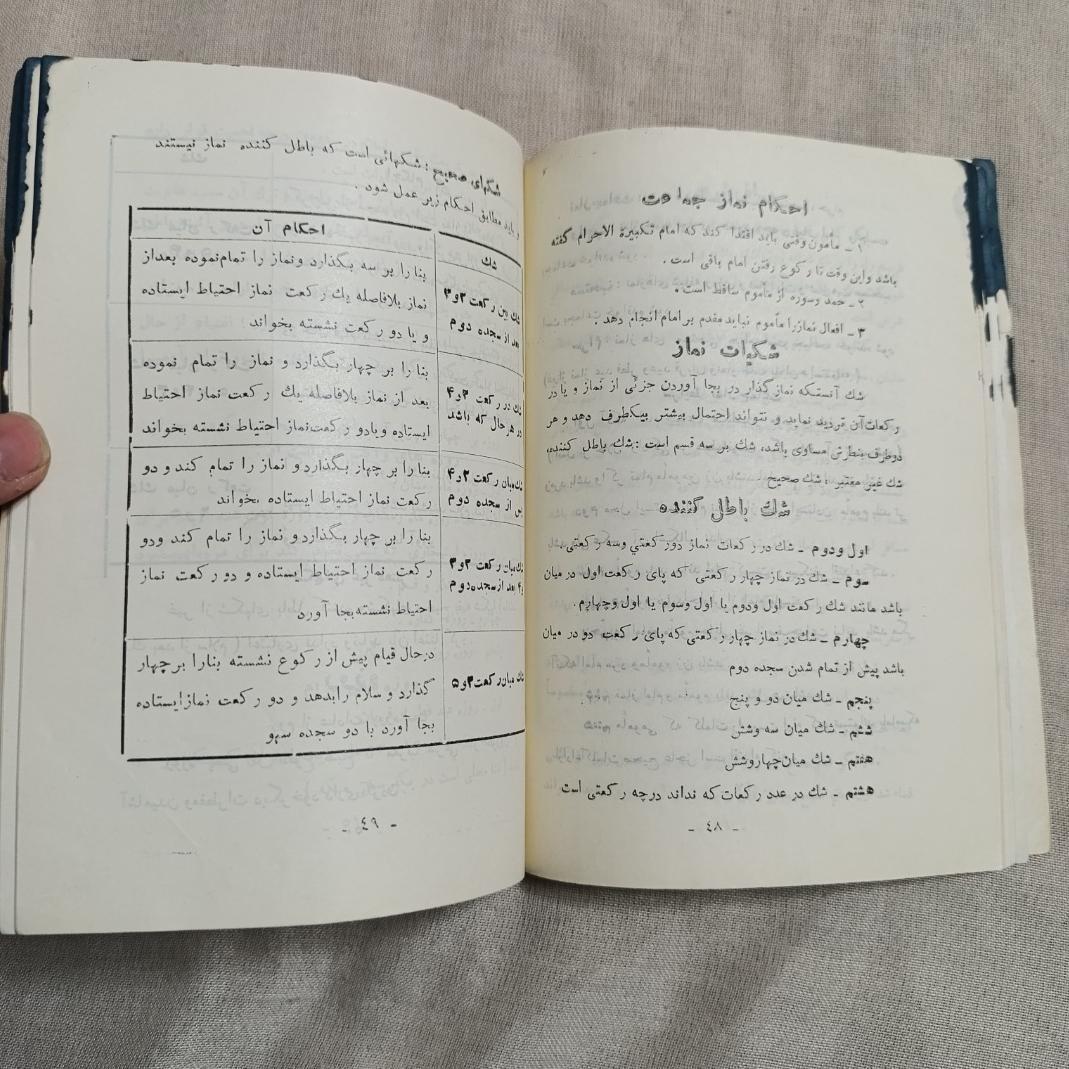 احكام نماز جماعت
۱ ـ مأمون وقتی باید اقتدا کند که امام تکبیرة الاحرام گفته
باشد واین وقت تا رکوع رفتن امام باقی است .
۲ ـ حمد وسوره از مأموم ساقط است .
۳ ـ افعال نمازرا مأموم نباید مقدم بر امام انجام دهد .
شکیات نماز
شك آنستکه نماز گذار در بجا آوردن جزئی از نماز و یا در
رکعات‌آن تردید نماید و نتواند احتمال بیشتر بیکطرف دهد و هر
دوطرف بنظرش مساوی باشد، شك بر سه قسم است : شك باطل کننده،
شك غیر معتبر ، شك صحیح
شك باطل کننده
اول ودوم ـ شك در رکعات نماز دورکعتی وسه رکعتی .
سوم ـ شك در نماز چهار رکعتی که پای رکعت اول در میان
باشد مانند شك رکعت اول ودوم یا اول وسوم یا اول وچهارم .
چهارم ـ شك در نماز چهار رکعتی که پای رکعت دو در میان
باشد پیش از تمام شدن سجده دوم
پنجم ـ شك میان دو و پنج
ششم ـ شك میان سه وشش
هفتم ـ شك میان چهاروشش
هشتم ـ شك در عدد رکعات که نداند درچه رکعتی است
ـ ٤٨ ـ
شکهای صحیح : شکهائی است که باطل کننده نماز نیستند
و باید مطابق احکام زیر عمل شود .
شك
احکام آن
شك بین رکعت ۲و۳
بعد از سجده دوم
بنا را بر سه بگذارد ونماز را تمام‌نموده بعداز
نماز بلافاصله یك رکعت نماز احتیاط ایستاده
و یا دو رکعت نشسته بخواند
شك در رکعت ۳و۴
در هرحال که باشد
بنا را بر چهار بگذارد و نماز را تمام نموده
بعد از نماز بلافاصله یك رکعت نماز احتیاط
ایستاده ویادو رکعت‌نماز احتیاط نشسته بخواند
شك میان رکعت ۲و۴
پس از سجده دوم
بنا را بر چهار بگذارد و نماز را تمام کند و دو
رکعت نماز احتیاط ایستاده بخواند
شك میان رکعت ۲و۳
و۴ بعد از سجده‌دوم
بنا را بر چهار بگذارد و نماز را تمام کند ودو
رکعت نماز احتیاط ایستاده و دو رکعت نماز
احتیاط نشسته‌بجا آورد
شك میان رکعت ۴و۵
درحال قیام پیش از رکوع نشسته بنارا بر چهار
گذارد و سلام را بدهد و دو رکعت نماز ایستاده
بجا آورد با دو سجده سهو
ـ ٤٩ ـ